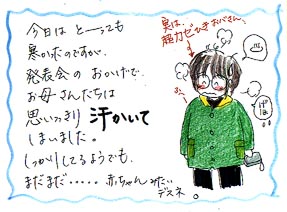 今日は と～っても
寒かったのですが、
発表会の おかげで、
お母さんたちは
思いっきり 汗かいて
しまいました。
しっかりしてるようでも、
まだまだ・・・・・赤ちゃんみたい
デスネ。
実は、
超カゼひきおばさん。
げほ